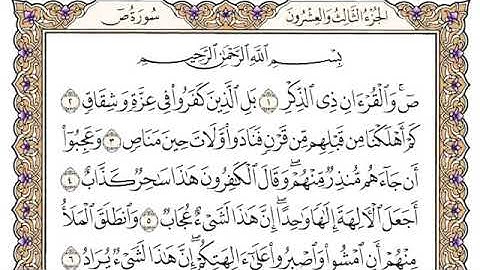 الجزء الثالث والعشرون
سورة ص
بِسْمِ ٱللَّهِ ٱلرَّحْمَٰنِ ٱلرَّحِيمِ
صٓ ۚ وَٱلْقُرْءَانِ ذِى ٱلذِّكْرِ ١ بَلِ ٱلَّذِينَ كَفَرُوا۟ فِى عِزَّةٍ وَشِقَاقٍ ٢
كَمْ أَهْلَكْنَا مِن قَبْلِهِم مِّن قَرْنٍ فَنَادَوا۟ وَّلَاتَ حِينَ مَنَاصٍ ٣ وَعَجِبُوٓا۟
أَن جَآءَهُم مُّنذِرٌ مِّنْهُمْ ۖ وَقَالَ ٱلْكَٰفِرُونَ هَٰذَا سَٰحِرٌ كَذَّابٌ ٤
أَجَعَلَ ٱلْـَٔالِهَةَ إِلَٰهًا وَٰحِدًا ۖ إِنَّ هَٰذَا لَشَىْءٌ عُجَابٌ ٥ وَٱنطَلَقَ ٱلْمَلَأُ
مِنْهُمْ أَنِ ٱمْشُوا۟ وَٱصْبِرُوا۟ عَلَىٰٓ ءَالِهَتِكُمْ ۖ إِنَّ هَٰذَا لَشَىْءٌ يُرَادُ ٦